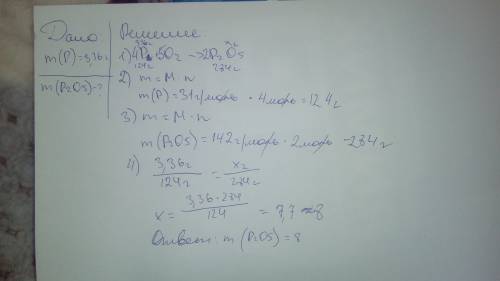 Дано
m(P)=3,36г
m(P₂O₅)-?
Решение
3,36г xг
1) 4P+5O₂ → 2P₂O₅
124г 284г
2) m = M · n
m(P)=31г/моль · 4моль = 124г
3) m = M · n
m(P₂O₅)=142г/моль · 2моль = 284г
4) 3,36г / 124г = xг / 284г
x = 3,36·284 / 124 = 7,7 ≈ 8
Ответ: m(P₂O₅) = 8